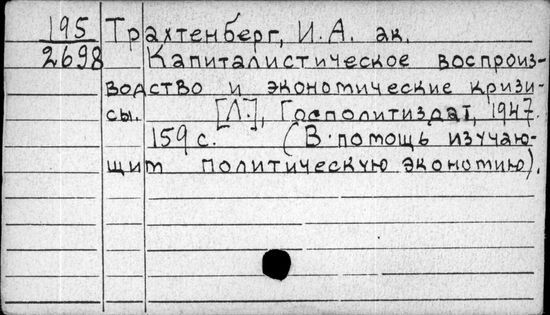 195 Трахтенберг, И. А. ак.
2698 Капиталистическое воспроиз-
водство и экономические кризи-
сы. [Л.], Госполитиздат, 1947.
159 с. (В помощь изучаю-
щим политическую экономию).